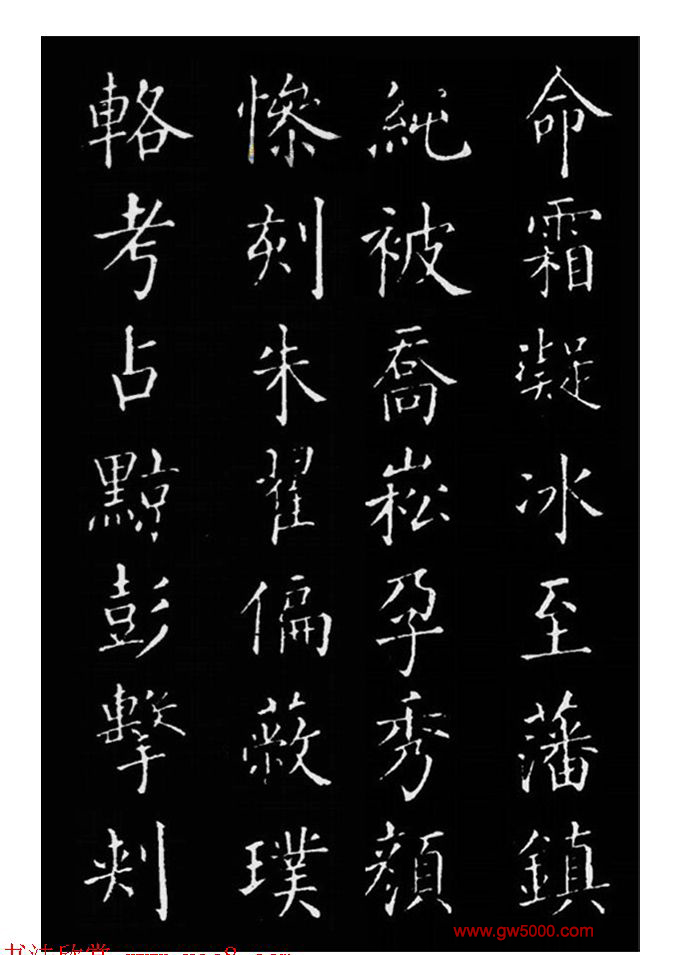 命霜凝冰至藩鎮
純被喬崧孕秀顏
慘刻朱翟偏蔽璞
輅考占黥彭擊刾
www.gw5000.com